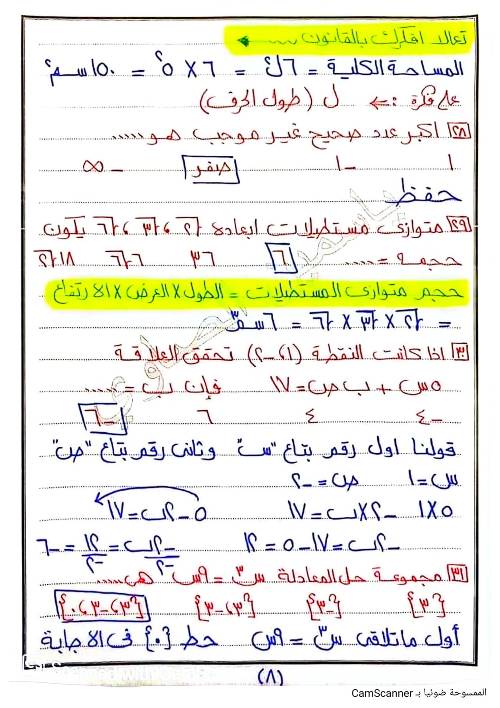 تعالا افكرك بالقانون ......
المساحة الكلية = ٦ل² = ٦ × ٥² = ١٥٠ سم²
على فكرة :← ل (طول الحرف)
٢٨ اكبر عدد صحيح غير موجب هو .....
١ -١ صفر -∞
حفظ
٢٩ متوازى مستطيلات ابعاده √٢ ، √٣ ، √٦ يكون
حجمه = ..... ٦ ٣٦ ٦√٦ ١٨√٢
حجم متوازى المستطيلات = الطول × العرض × الارتفاع
= √٢ × √٣ × √٦ = ٦ سم³
٣٠ اذا كانت النقطة (١، -٢) تحقق العلاقة
٥س + ب ص = ١٧ فإن ب = .....
-٤ ٤ ٦ -٦
قولنا اول رقم بتاع "س" وثانى رقم بتاع "ص"
س = ١ ص = -٢
٥×١ -٢×ب = ١٧ ٥ -٢ب = ١٧
-٢ب = ١٧ - ٥ = ١٢ -٢ب/-٢ = ١٢/-٢ = -٦
٣١ مجموعة حل المعادلة س³ = ٩س هى .....
{٣} {-٣} {٣، -٣} {٣، -٣، ٠}
أول ماتلاقى س³ = ٩س حط {٠} فى الاجابة
(٨)
الممسوحة ضوئيا بـ CamScanner